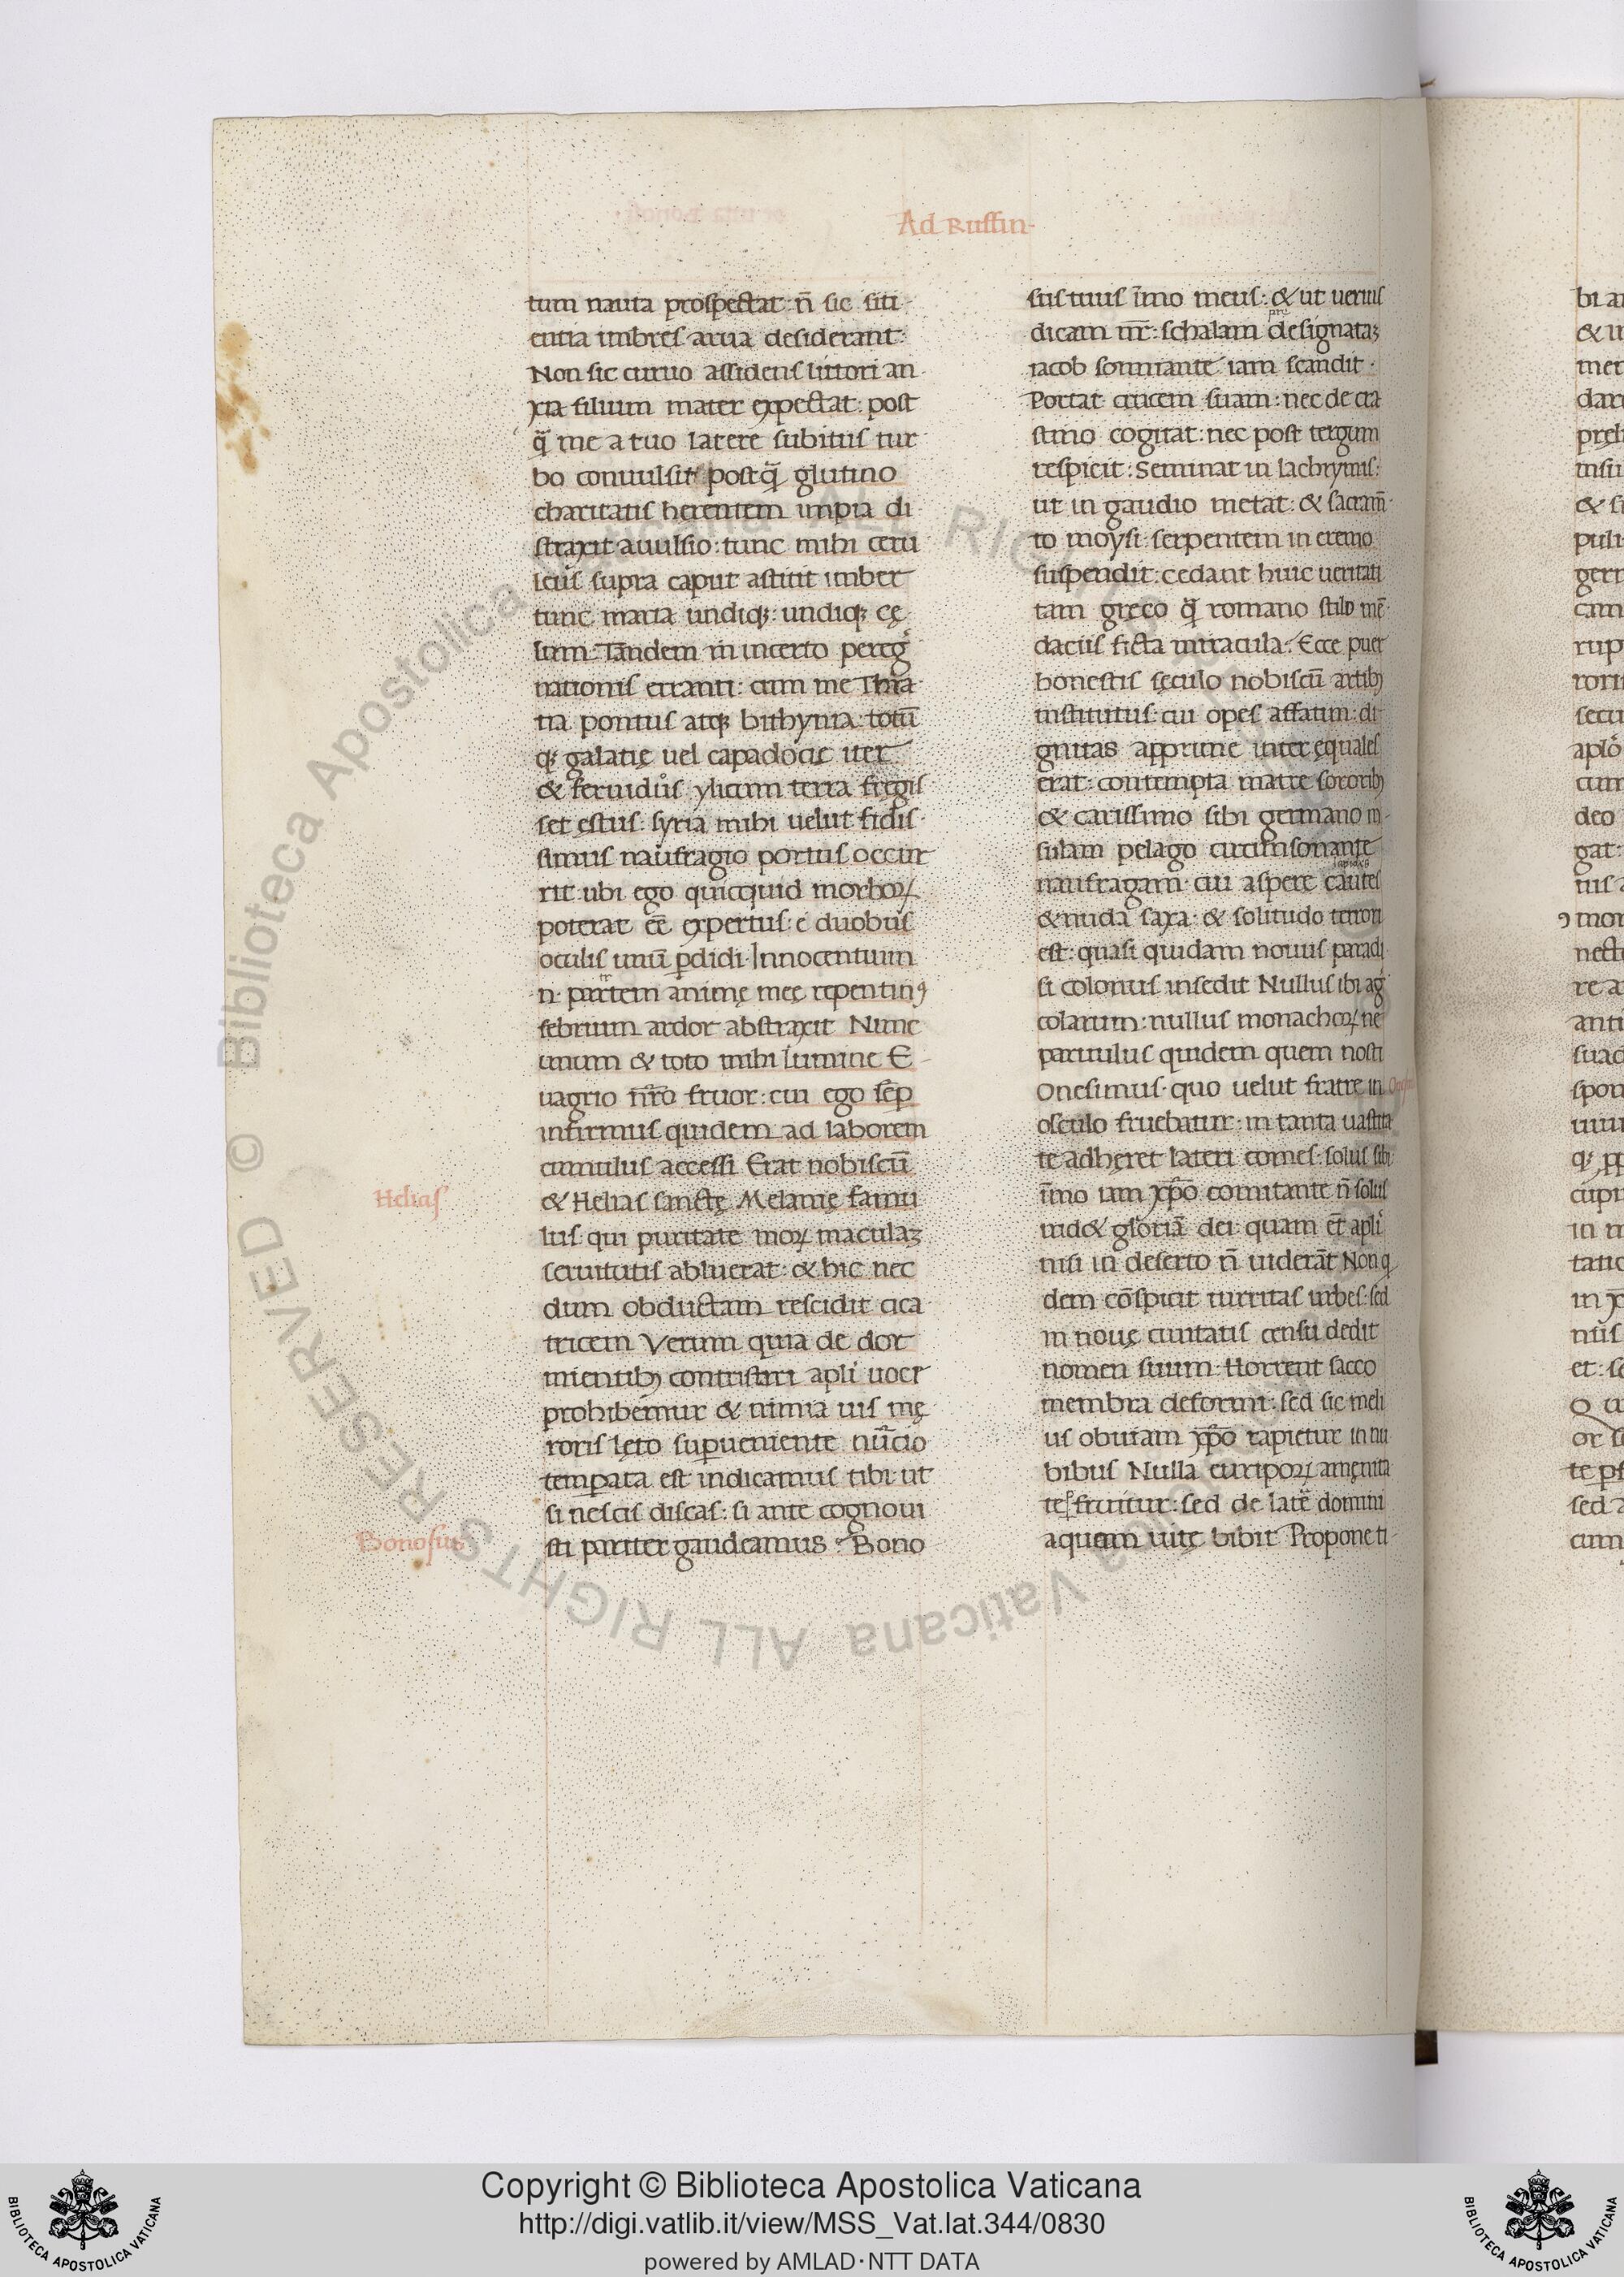 Ad Ruffin·
tum nauta prospectat: n̄ sic siti-
entia imbres arua desiderant:
Non sic curuo assidens littori an-
xia filium mater expectat: post
q̄ me a tuo latere subitus tur
bo conuulsit: postq̄ glutino
charitatis herentem impia di
straxit auulsio: tunc mihi ceru
leus supra caput astitit imber
tunc maria undiqꝫ: undiqꝫ cę
lum: Tandem in incerto peregͥ
nationis erranti: cum me Thra
tia pontus atqꝫ bithynia: totū
qꝫ galatię uel capadocię iter
& feruidus ylicum terra fregis
set ęstus: syria mihi uelut fidis-
simus naufragio portus occur
rit: ubi ego quicquid morboꝝ
poterat eē expertus: e duobus
oculis unū ꝑdidi: Innocentium
n: partem animę meę repentinꝰ
febrium ardor abstraxit Nunc
unum & toto mihi lumine E-
uagrio nr̄o fruor: cui ego sēꝑ
infirmus quidem ad laborem
cumulus accessi Erat nobiscū
Helias
& Helias sanctę Melanię famu
lus: qui puritate moꝝ maculaꝫ
seruitutis abluerat: & hic nec
dum obductam rescidit cica
tricem Verum quia de dor
mientibꝫ contristari apli uocͤ
prohibemur & nimia uis mę
roris lęto suꝑueniente nūcio
temꝑata est indicamus tibi: ut
si nescis discas: si ante cognoui
Bonosus
sti pariter gaudeamus Bono
sus tuus ĩmo meus: & ut uerius
pre
dicam nr̄: schalam designataꝫ
iacob somniante iam scandit·
Portat crucem suam: nec de cra
stino cogitat: nec post tergum
respicit: Seminat in lachrymis:
ut in gaudio metat: & sacram̄
to moysi: serpentem in eremo
suspendit: cedant huic ueritati
tam greco q̄ romano stilo mē
daciis ficta miracula: Ecce puer
honestis sęculo nobiscū artibꝫ
institutus: cui opes affatim: di
gnitas apprime inter ęquales
erat: contempta matre sororibꝫ
& carissimo sibi germano in-
sulam pelago circumsonante
lapides
naufragam: cui asperę cautes
& nuda saxa: & solitudo terrori
est: quasi quidam nouus paradi
si colonus insedit Nullus ibi agͥ
colarum: nullus monachoꝝ ne
paruulus quidem quem nosti
Onesimus: quo uelut fratre in
osculo fruebatur: in tanta uastita
te adhęret lateri comes: solus sibi
ĩmo iam xp̄o comitante n̄ solus
uid& gloriā dei: quam et̄ apli
nisi in deserto n̄ uiderāt Non q
dem cōspicit turritas urbes: sed
in nouę ciuitatis censu dedit
nomen suum: Horrent sacco
membra deformi: sed sic meli
us obuiam xp̄o rapietur in nu
bibus Nulla euripoꝝ amęnita
te fruitur: sed de latē domini
aquam uitę bibit Propone ti
Copyright © Biblioteca Apostolica Vaticana
http://digi.vatlib.it/view/MSS_Vat.lat.344/0830
powered by AMLAD·NTT DATA